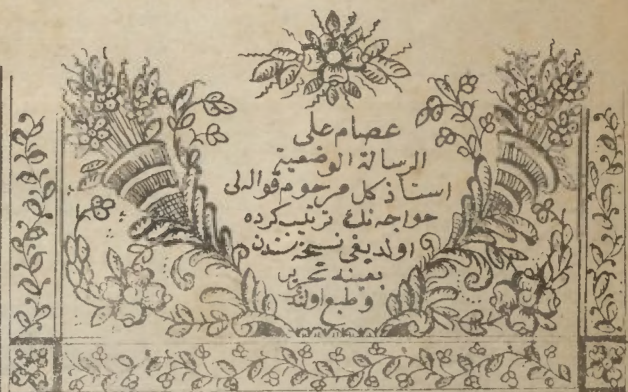 عصام على
الرسالة الوضعية
استاذ كل مرحوم قواله لى
حواجه نك ترتيب كرده
اولديغى نسخه سندن
بعينه تحرير
و طبع اولندى